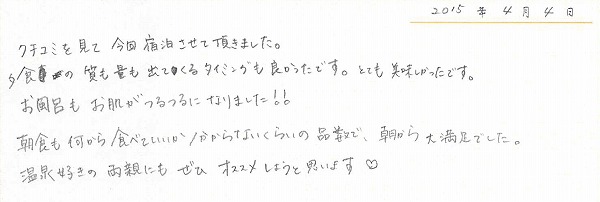 2015 年 4 月 4 日
クチコミを見て 今回 宿泊させて頂きました。
夕食の 質も量も 出てくるタイミングも良かったです。とても 美味しかったです。
お風呂も お肌がつるつるに なりました!!
朝食も 何から 食べていいか 分からないくらいの 品数で、朝から 大満足でした。
温泉好きの 両親にも ぜひ オススメしようと思います ♡